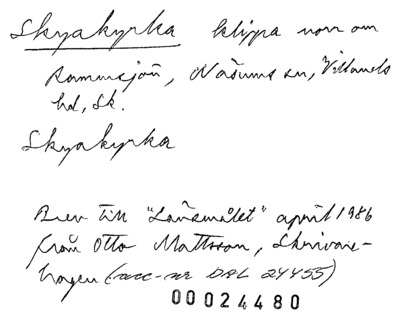 Skyakyrka klippa norr om
Rammsjön, Näsums sn, Villands
hd, Sk.
Skyakyrka
Brev till "Länsmålet" april 1986
från Otto Mattsson, Skrivare-
hagen (acc-nr DAL 24455)
00024480